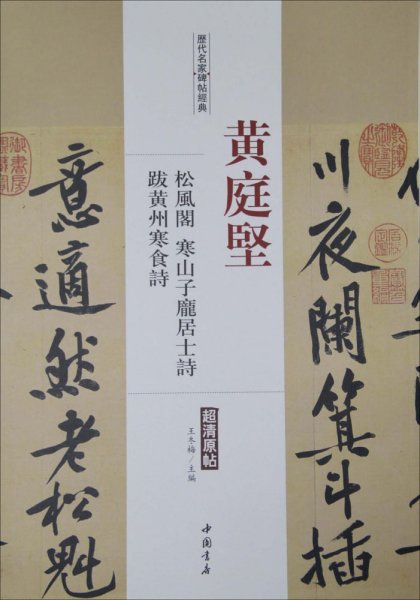 歷代名家碑帖經典
黄庭堅
松風閣 寒山子龐居士詩
跋黄州寒食詩
超清原帖
王冬梅/主編
中国書店
川夜闌箕斗插
意適然老松魁